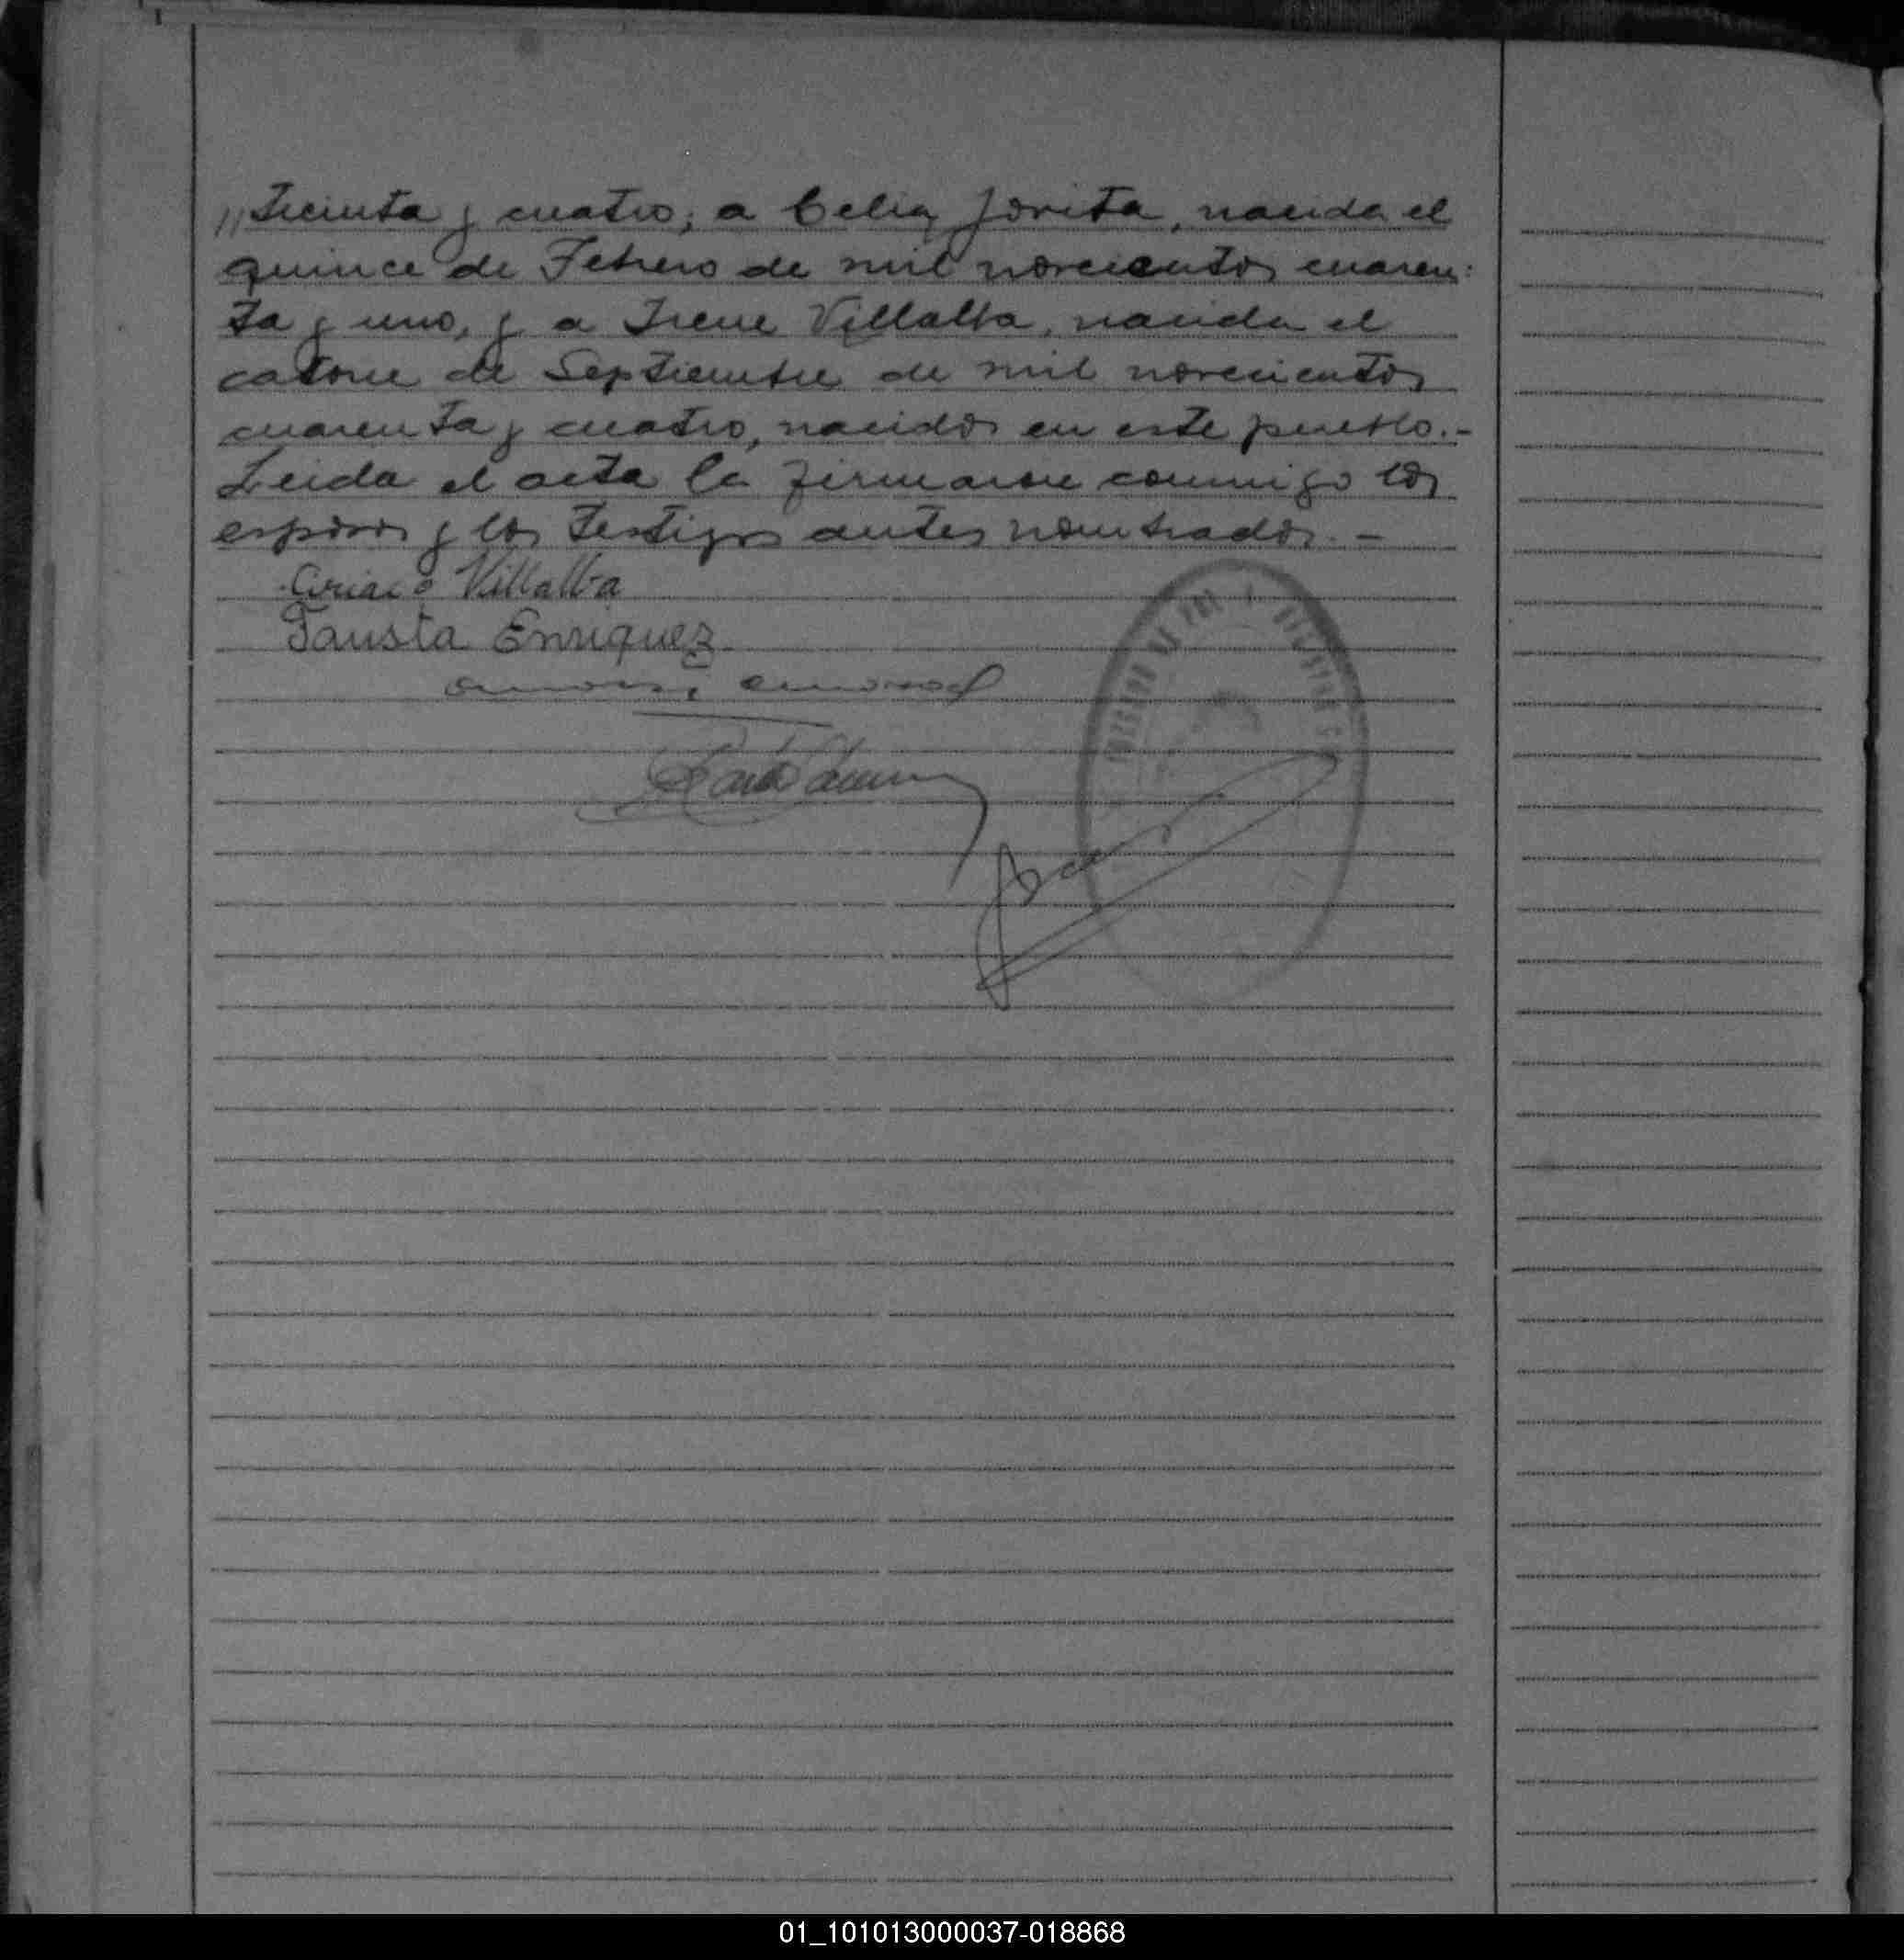 // treinta y cuatro; a Celia Jovita, nacida el
quince de Febrero de mil novecientos cuaren-
ta y uno, y a Irene Villalba, nacida el
catorce de Septiembre de mil novecientos
cuarenta y cuatro, nacidos en este pueblo.-
Leida el acta la firmaron conmigo los
esposos y los testigos antes nombrados.-
Ciriaco Villalba
Fausta Enriquez
01_101013000037-018868